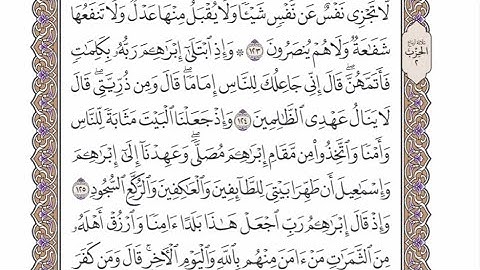 لَّا تَجْزِى نَفْسٌ عَن نَّفْسٍ شَيْـًٔا وَلَا يُقْبَلُ مِنْهَا عَدْلٌ وَلَا تَنفَعُهَا
شَفَـٰعَةٌ وَلَا هُمْ يُنصَرُونَ ١٢٣ ۞ وَإِذِ ٱبْتَلَىٰٓ إِبْرَٰهِـۧمَ رَبُّهُۥ بِكَلِمَـٰتٍ
فَأَتَمَّهُنَّ ۖ قَالَ إِنِّى جَاعِلُكَ لِلنَّاسِ إِمَامًا ۖ قَالَ وَمِن ذُرِّيَّتِى ۖ قَالَ
لَا يَنَالُ عَهْدِى ٱلظَّـٰلِمِينَ ١٢٤ وَإِذْ جَعَلْنَا ٱلْبَيْتَ مَثَابَةً لِّلنَّاسِ
وَأَمْنًا وَٱتَّخِذُوا۟ مِن مَّقَامِ إِبْرَٰهِـۧمَ مُصَلًّى ۖ وَعَهِدْنَآ إِلَىٰٓ إِبْرَٰهِـۧمَ
وَإِسْمَـٰعِيلَ أَن طَهِّرَا بَيْتِىَ لِلطَّآئِفِينَ وَٱلْعَـٰكِفِينَ وَٱلرُّكَّعِ ٱلسُّجُودِ ١٢٥
وَإِذْ قَالَ إِبْرَٰهِـۧمُ رَبِّ ٱجْعَلْ هَـٰذَا بَلَدًا ءَامِنًا وَٱرْزُقْ أَهْلَهُۥ
مِنَ ٱلثَّمَرَٰتِ مَنْ ءَامَنَ مِنْهُم بِٱللَّهِ وَٱلْيَوْمِ ٱلْـَٔاخِرِ ۖ قَالَ وَمَن كَفَرَ
ٱلْحِزْب
٢